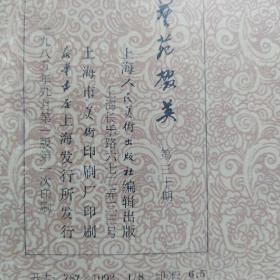 艺苑掇英
第三十期
上海人民美术出版社编辑出版
上海长乐路六七二弄三三号
上海市美术印刷厂印刷
新华书店上海发行所发行
一九八五年九月第一版第一次印刷
开本：787×1092 1/8 印张 6.5